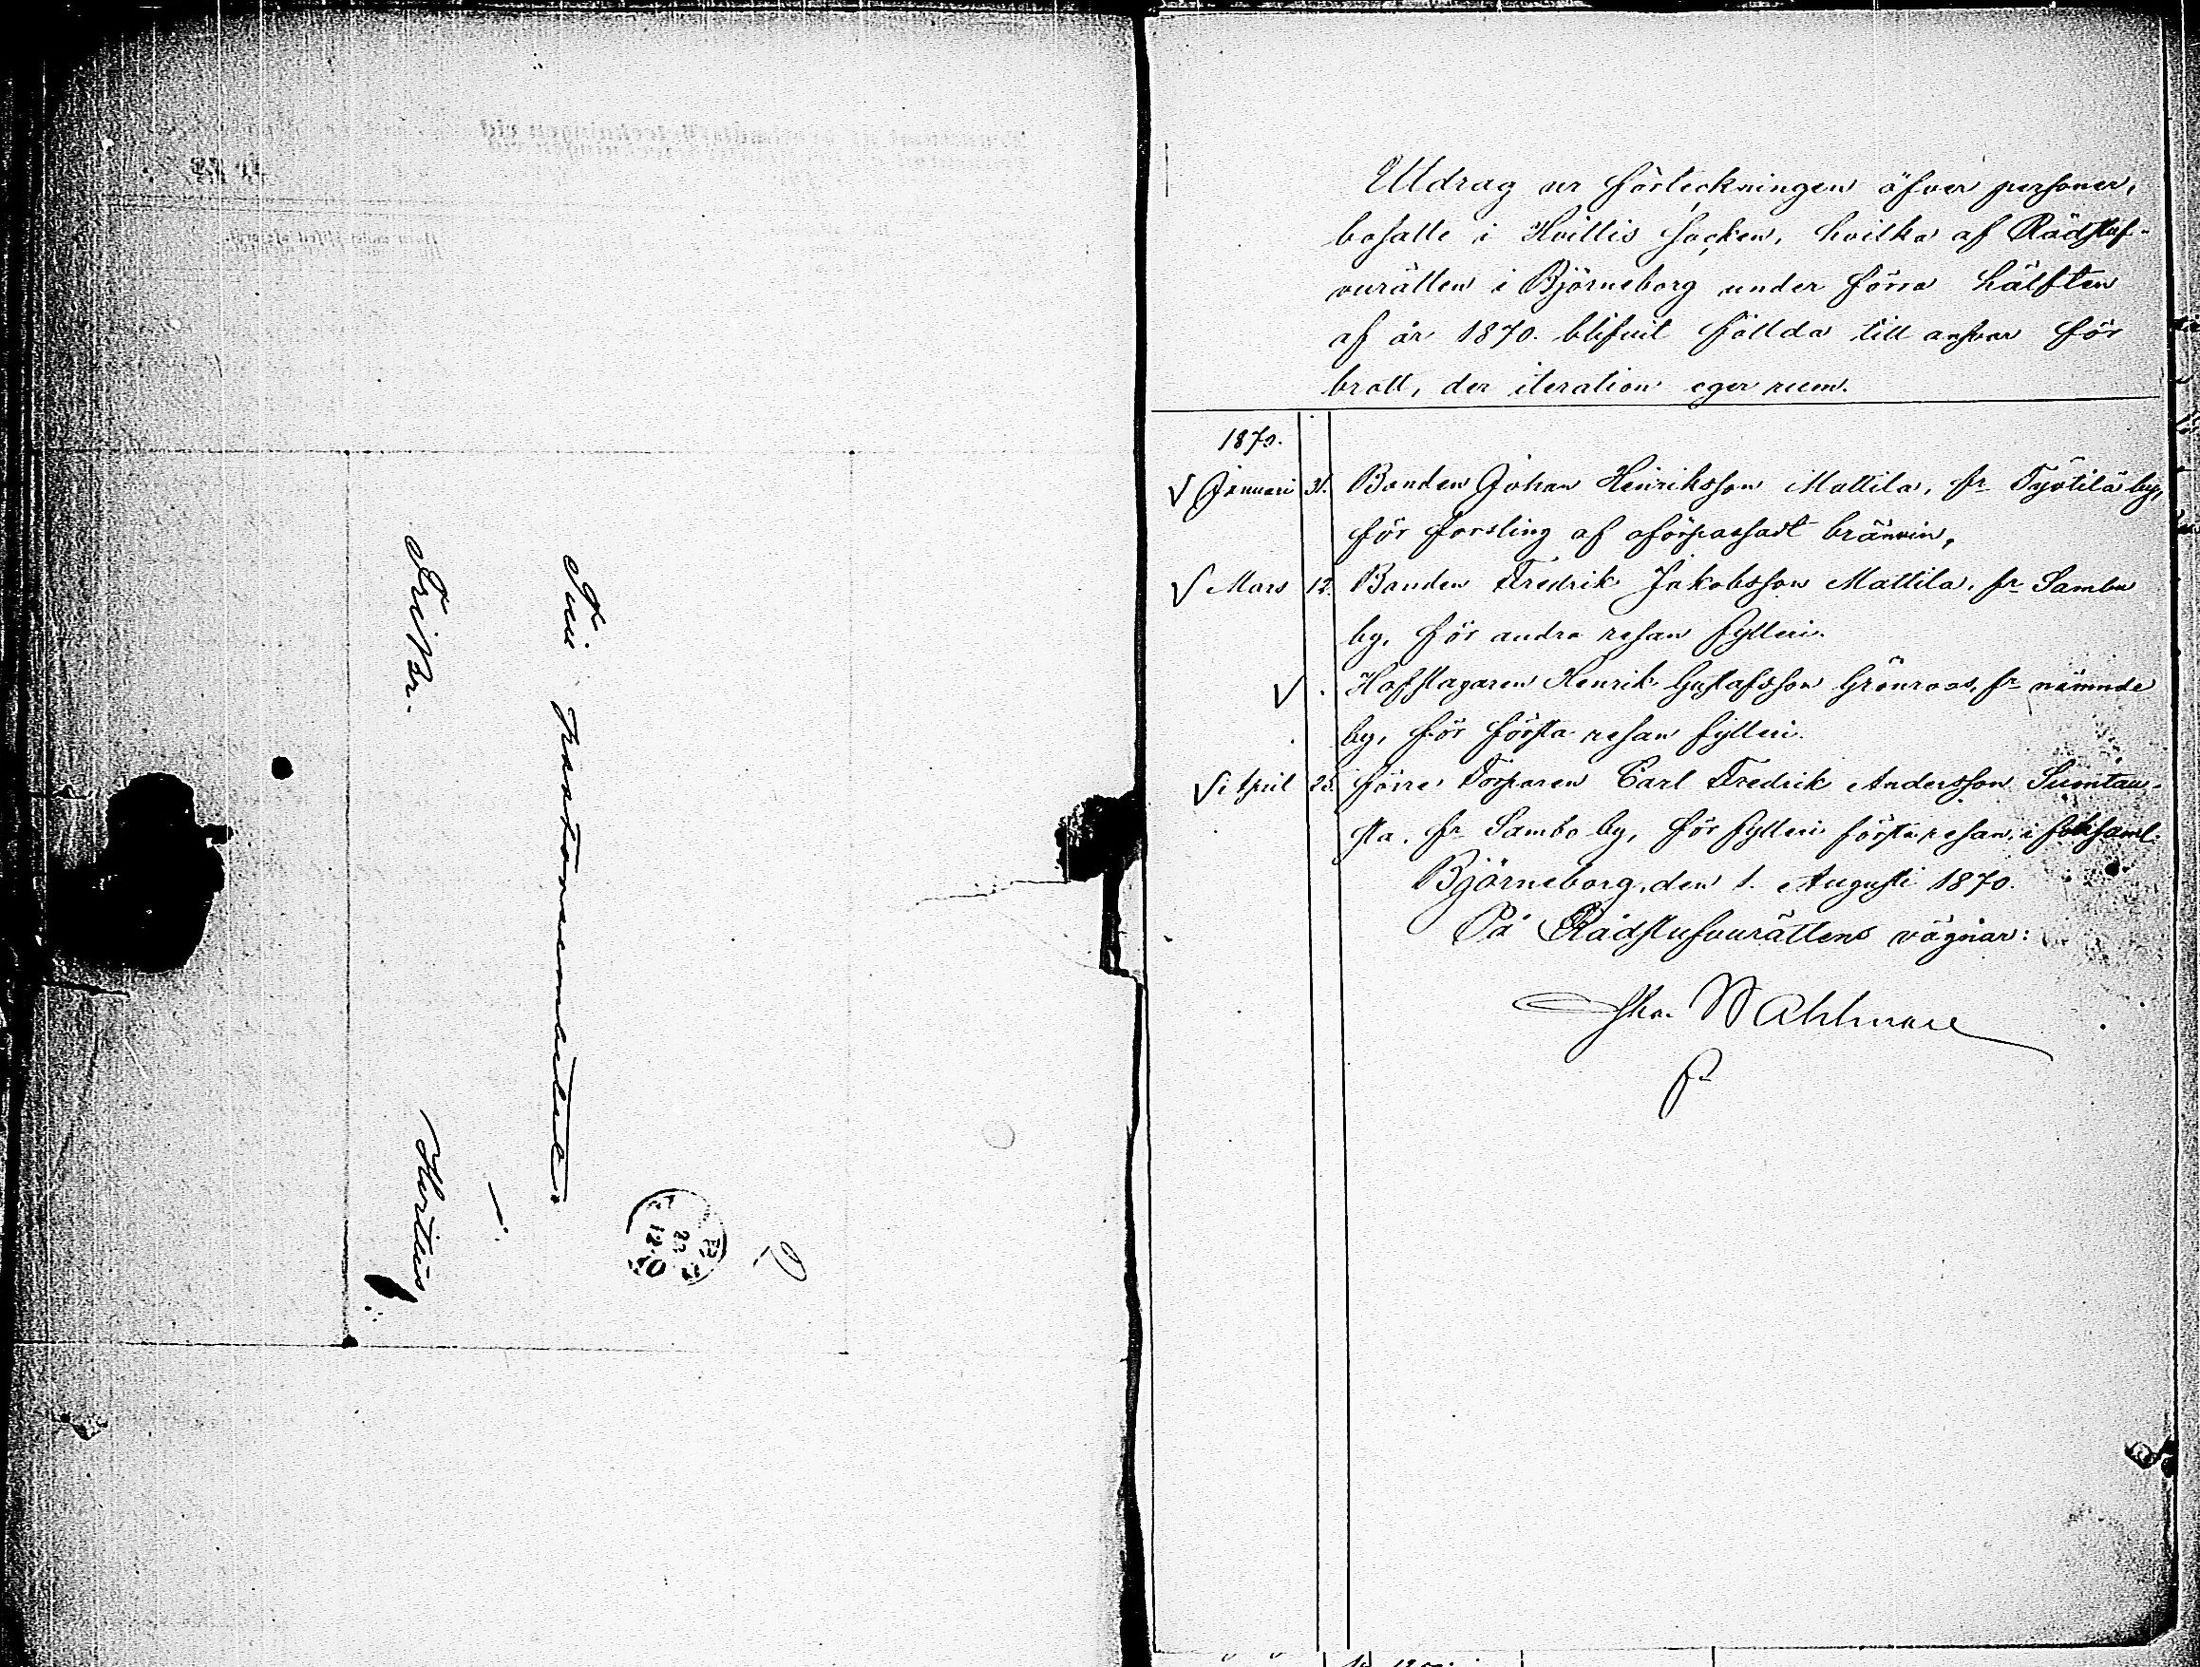 Fri Br.
Till Pastorsembetet
i
Hvittis
Utdrag ur förteckningen öfver personer,
bosatte i Hvittis socken, hvilka af Rådstuf-
vurätten i Björneborg under förra hälften
af år 1870. blifvit fällda till ansvar för
brott, der iteration eger rum.
1870.
Januari 31. Bonden Johan Heinriksson Mattila, fr. Työtilä by,
för forsling af oförpassadt bränvin,
Mars 12. Bonden Fredrik Jakobsson Mattila, fr. Sambu
by, för andra resan fylleri.
Hofslagaren Henrik Gustafsson Grönroos, fr. nämnde
by, för första resan fylleri.
April 25. förre Torparen Carl Fredrik Andersson
sta, fr. Sambo by, för fylleri första resan, i folksaml.
Björneborg, den 1. Augusti 1870.
På Rådstufvurättens vägnar:
Wahlman